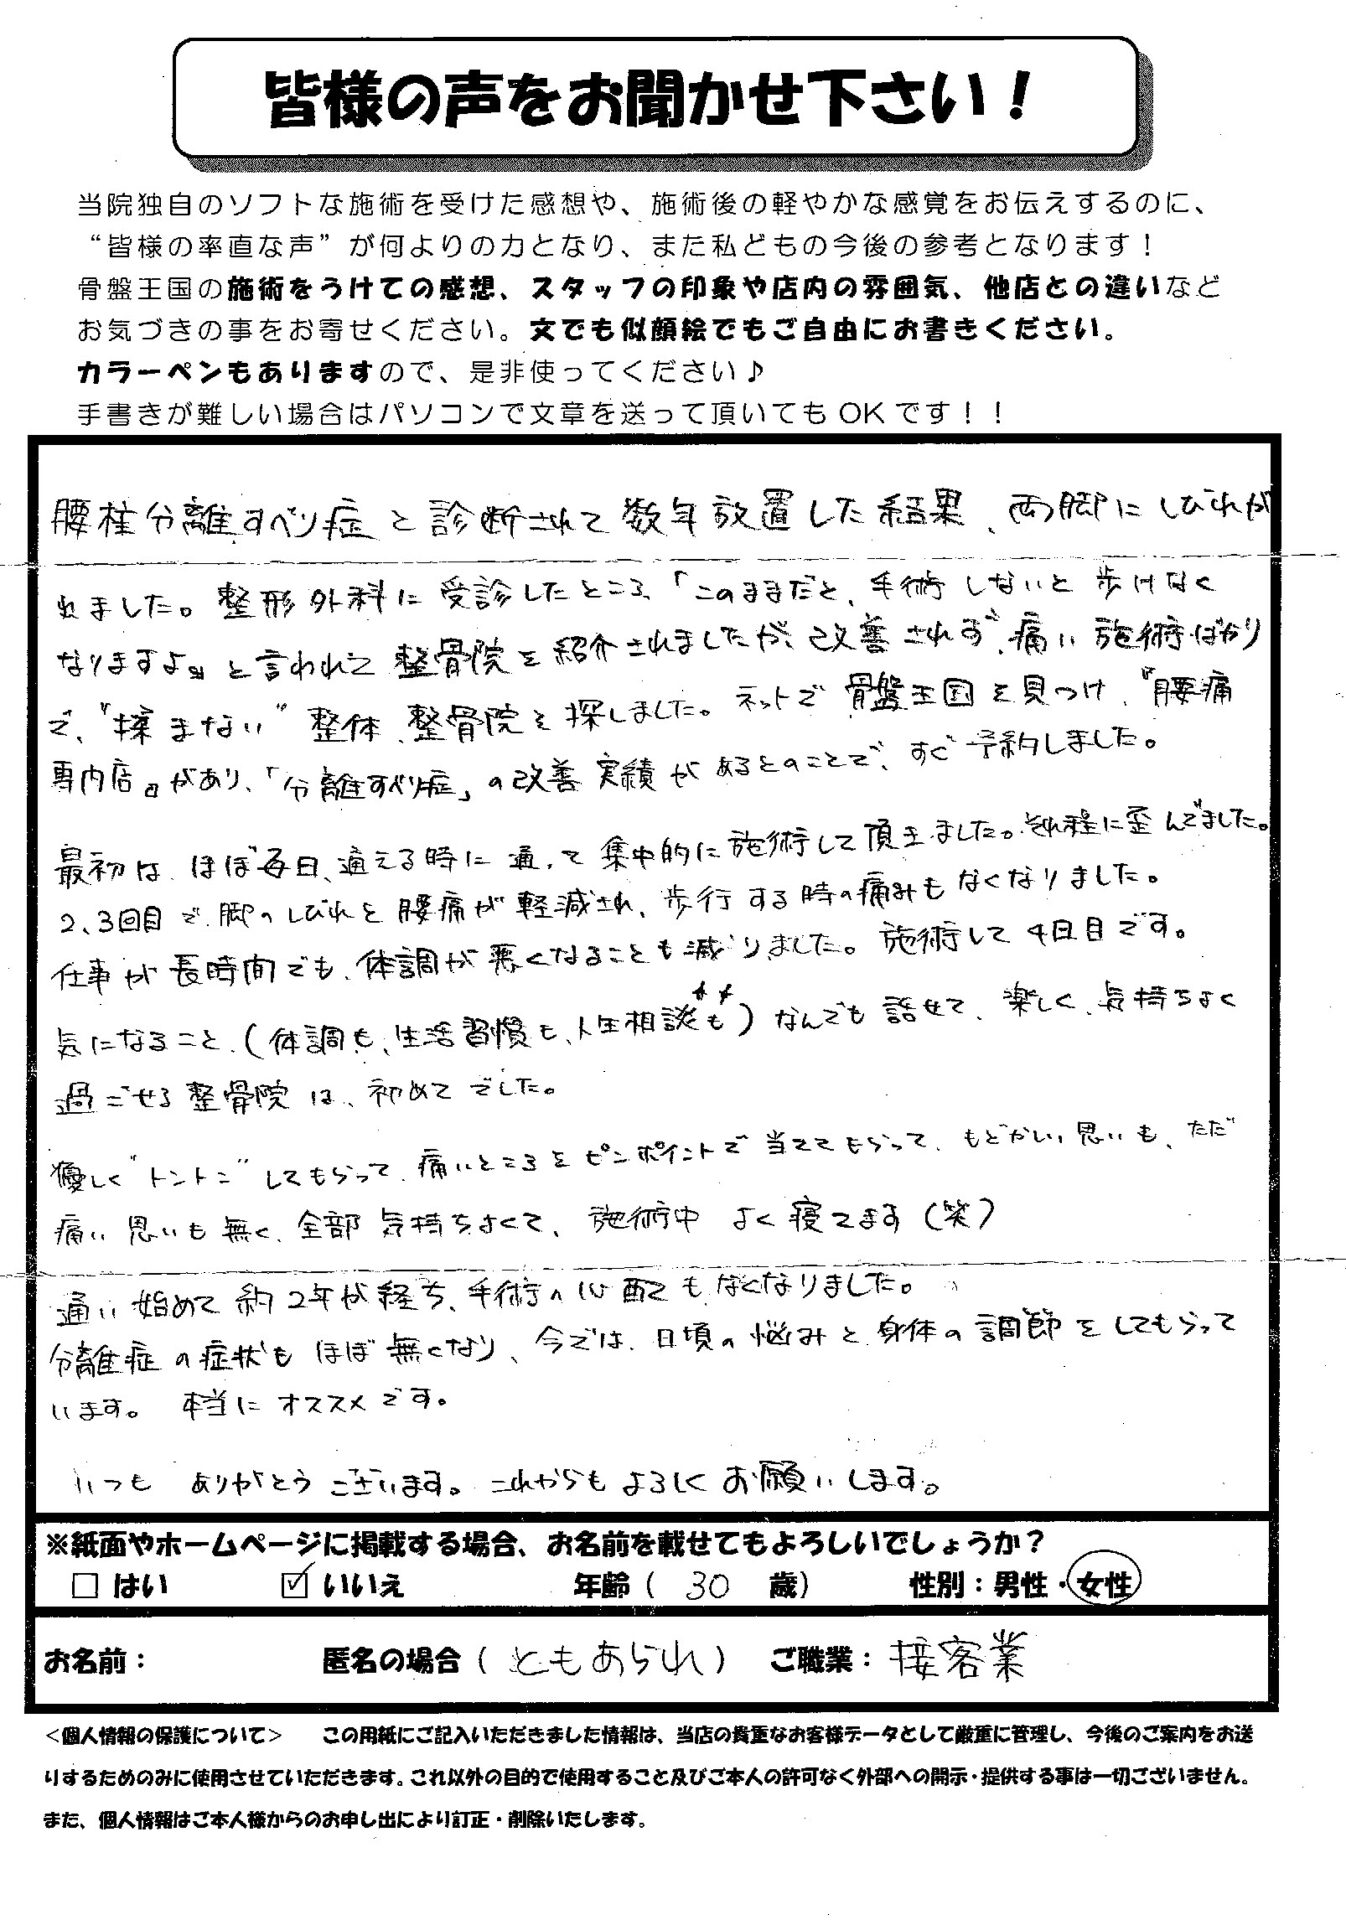 皆様の声をお聞かせ下さい！
当院独自のソフトな施術を受けた感想や、施術後の軽やかな感覚をお伝えするのに、
“皆様の率直な声”が何よりの力となり、また私どもの今後の参考となります！
骨盤王国の施術をうけての感想、スタッフの印象や店内の雰囲気、他店との違いなど
お気づきの事をお寄せください。文でも似顔絵でもご自由にお書きください。
カラーペンもありますので、是非使ってください♪
手書きが難しい場合はパソコンで文章を送って頂いてもOKです！！
腰椎分離すべり症と診断されて数年放置した結果、両脚にしびれが
れました。整形外科に受診したところ、「このままだと、手術しないと歩けなく
なりますよ」と言われて整骨院を紹介されましたが、改善されず、痛い施術ばかり
で、“揉まない”整体、整骨院を探しました。ネットで骨盤王国を見つけ、『腰痛
専門店』があり、「分離すべり症」の改善実績があるとのことで、すぐ予約しました。
最初は、ほぼ毎日、通える時に通って集中的に施術して頂きました。それ程に歪んでました。
2、3回目で、脚のしびれと腰痛が軽減され、歩行する時の痛みもなくなりました。
仕事が長時間でも、体調が悪くなることも減りました。施術して4日目です。
気になること、(体調も、生活習慣も、人生相談も)なんでも話せて、楽しく、気持ちよく
過ごせる整骨院は、初めてでした。
優しく“トントン”してもらって、痛いところをピンポイントで当ててもらって、もどかしい思いも、ただ
痛い思いも無く、全部気持ちよくて、施術中よく寝てます(笑)
通い始めて約2年が経ち、手術の心配もなくなりました。
分離症の症状もほぼ無くなり、今では、日頃の悩みと身体の調節をしてもらって
います。本当にオススメです。
いつもありがとうございます。これからもよろしくお願いします。
※紙面やホームページに掲載する場合、お名前を載せてもよろしいでしょうか？
□はい ☑いいえ 年齢（30歳） 性別：男性・女性
お名前： 匿名の場合（ともあられ） ご職業：接客業
＜個人情報の保護について＞ この用紙にご記入いただきました情報は、当店の貴重なお客様データとして厳重に管理し、今後のご案内をお送
りするためのみに使用させていただきます。これ以外の目的で使用すること及びご本人の許可なく外部への開示・提供する事は一切ございません。
また、個人情報はご本人様からのお申し出により訂正・削除いたします。